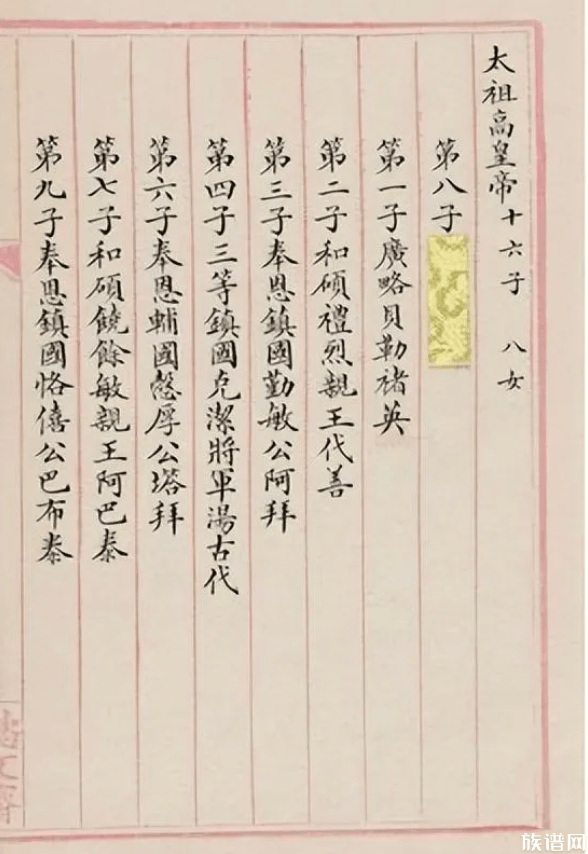 太祖高皇帝十六子 八女
第八子
第一子廣略貝勒褚英
第二子和碩禮烈親王代善
第三子奉恩鎮國勤敏公阿拜
第四子三等鎮國克潔將軍湯古代
第六子奉恩輔國慤厚公塔拜
第七子和碩饒餘敏親王阿巴泰
第九子奉恩鎮國恪僖公巴布泰
族谱网